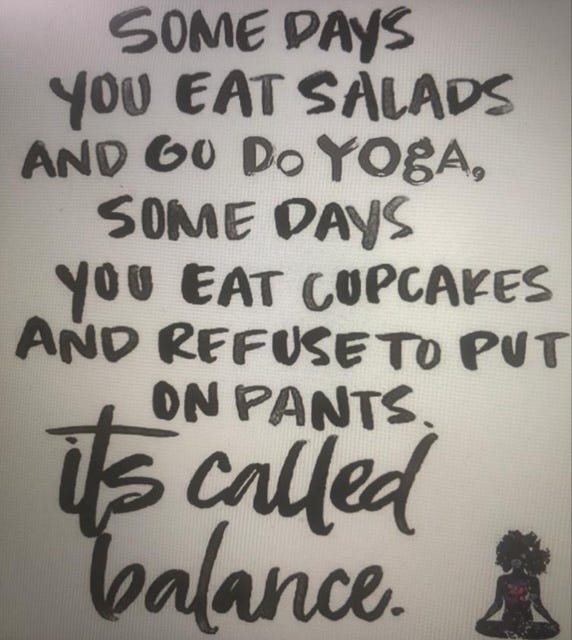 SOME DAYS
YOU EAT SALADS
AND GO DO YOGA,
SOME DAYS
YOU EAT CUPCAKES
AND REFUSE TO PUT
ON PANTS.
its called
balance.